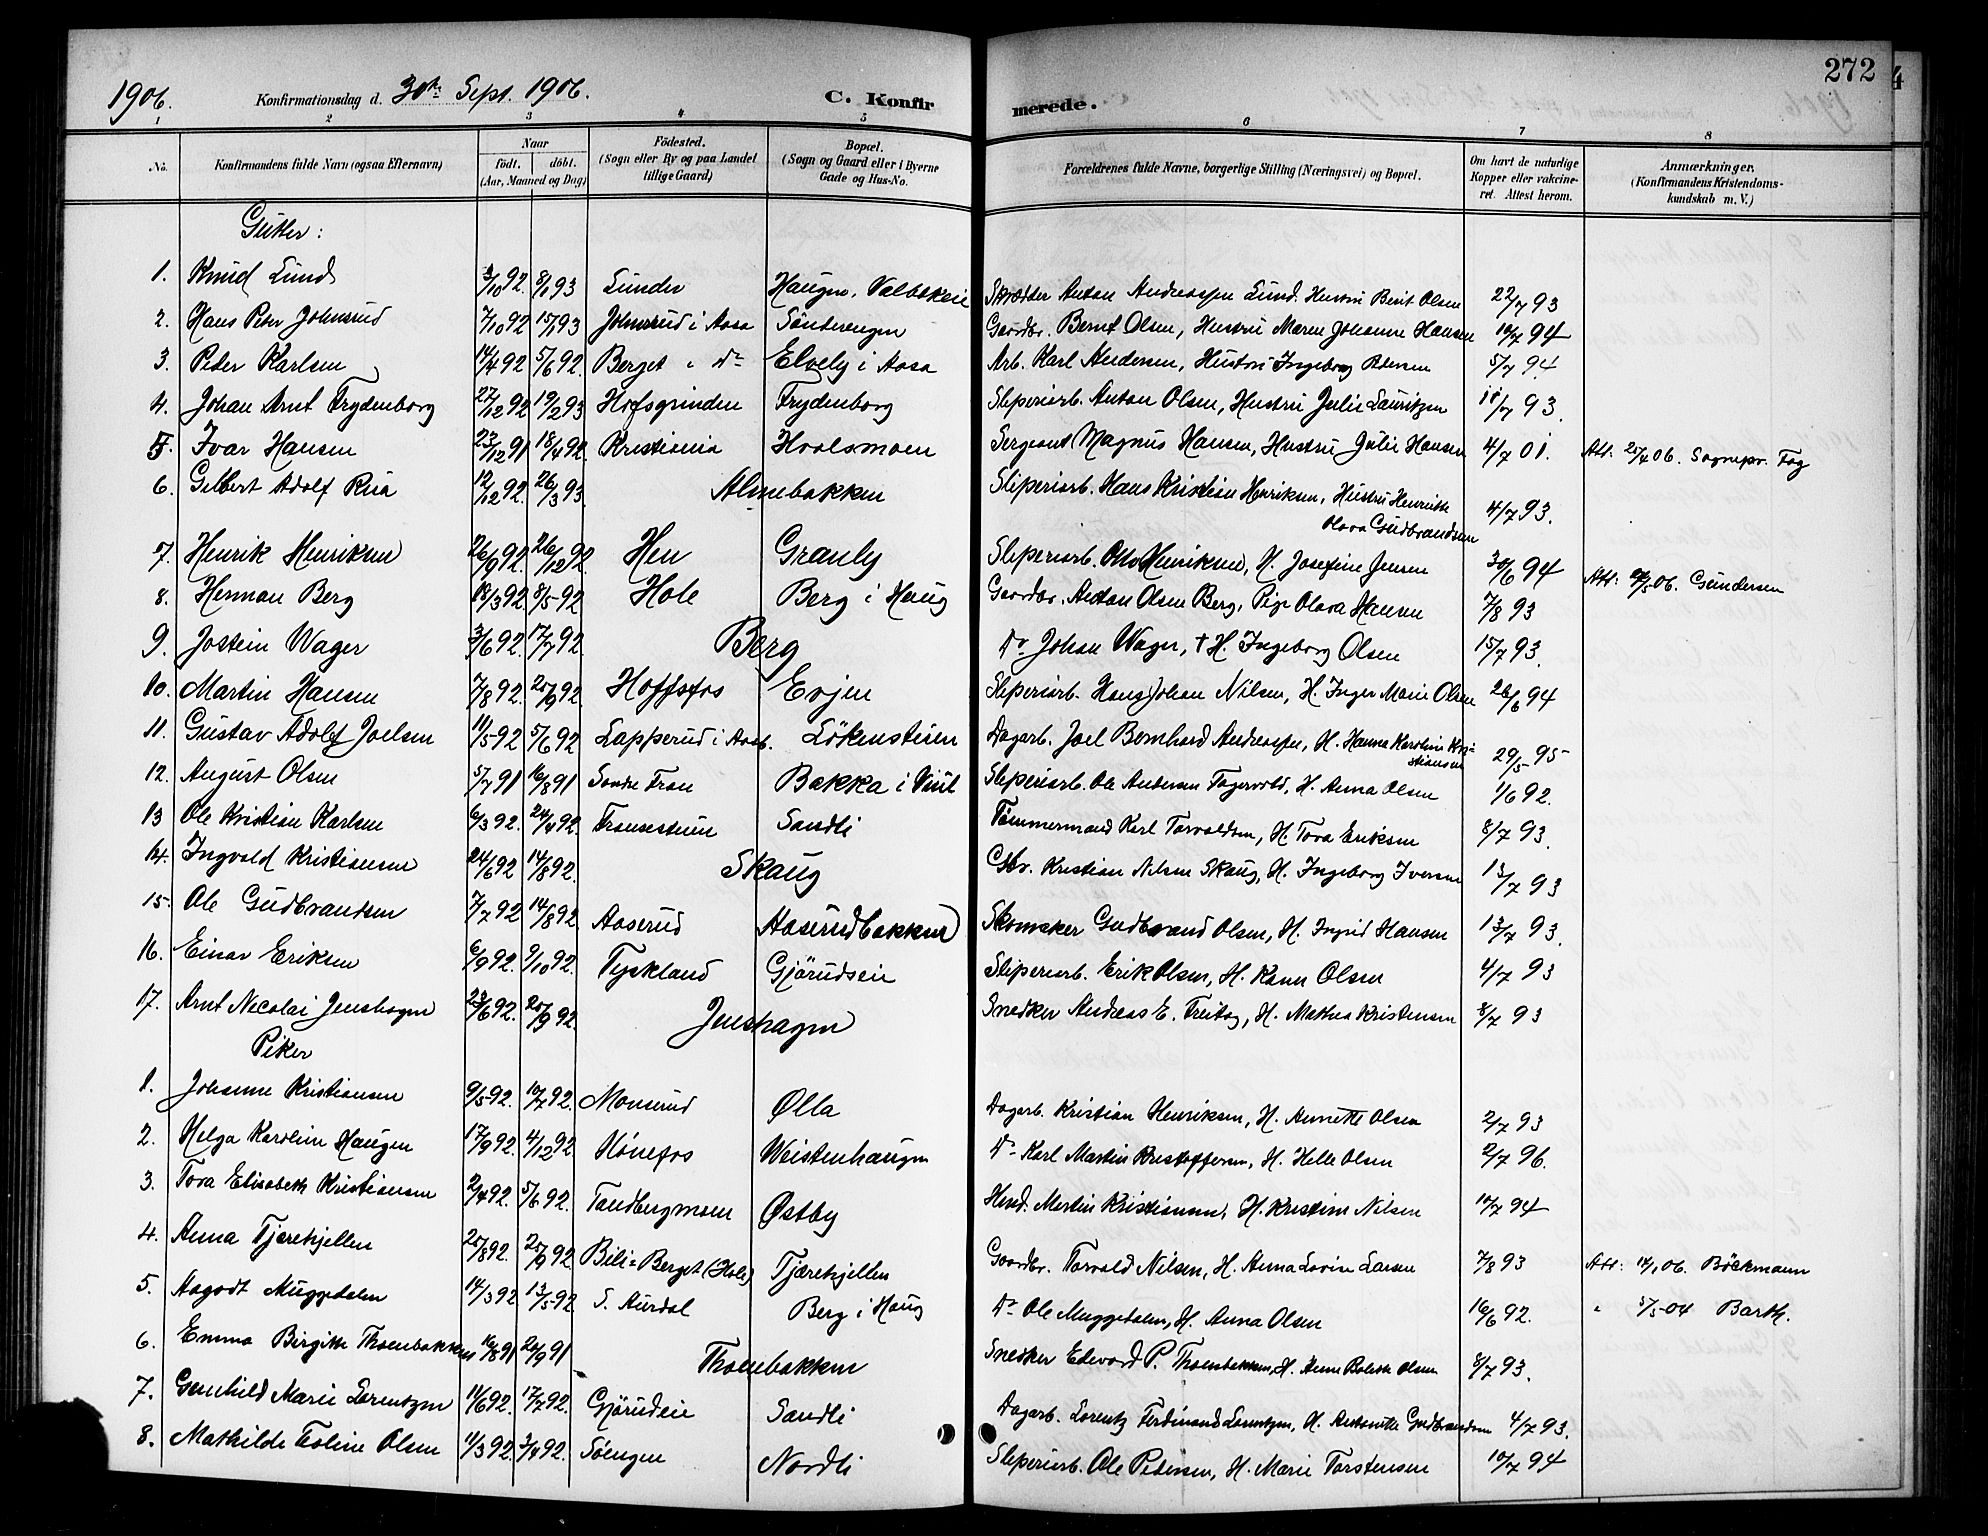 1906. Konfirmationsdag d. 30te Sept. 1906. C. Konfirmerede. 272
1 2 3 4 5 6 7 8
No. Konfirmandens fulde Navn (ogsaa Efternavn) Naar født. døbt. (Aar, Maaned og Dag) Fødested. (Sogn eller By og paa Landet tillige Gaard) Bopæl. (Sogn og Gaard eller i Byerne Gade og Hus-No. Forældrenes fulde Navne, borgerlige Stilling (Næringsvei) og Bopæl. Om havt de naturlige Kopper eller vakcineret. Attest herom. Anmærkninger. (Konfirmandens Kristendomskundskab m. V.)
Gutter:
1. Knud Lund 3/10 92. 8/1 93 Lunder Haugen, Skrædder Anton Andreassen Lund. Hustru Berit Olsen 22/7 93
2. Hans Peter Johnsrud 7/10 92 15/1 93 Johnsrud i Aasa Sønderengen Gaardbr. Bernt Olsen, Hustru Maren Johanne Hansen 10/7 94
3. Peder Karlsen 14/4 92 5/6 92. Berget " Do Elvely i Aasa Arb. Karl Andersen, Hustru Ingeborg Pedersen 5/7 94.
4. Johan Arnt Frydenborg 27/12 92 19/2 93 Hofsgrinden Frydenborg Sliperiarb. Anton Olsen, Hustru Julie Lauritzen 18/7 93.
5. Ivar Hansen 23/12 91 18/4 92. Kristiania Hvalsmoen Sergeant Magnus Hansen, Hustru Julie Hansen 4/7 01. Att: 20/4 06. Sognepr.
6. Gelbert Adolf Rua 12/12 92. 26/3 93. Almebakken Sliperiarb. Hans Kristian Henriksen, Hustru Henriette
Olava Gudbrandsen 4/7 93.
7. Henrik Henriksen 26/9 92. 26/12 92. Hen Granly Sliperiarb. Otto Henriksen, H. Josefine Jensen 30/6 94
8. Herman Berg 18/3 92 8/5 92 Hole Berg i Haug Gaardbr. Anton Olsen Berg, Pige Olava Hansen 7/8 93 Att: 06. Gundersen
9. Jostein Wager 3/6 92. 17/7 92. Berg Do Johan Wager, † H. Ingeborg Olsen 15/7 93.
10. Martin Hansen 7/8 92. 20/9 92. Hoffsfos Evjen Sliperiarb. Hans Johan Nilsen, H. Inger Marie Olsen 26/6 94
11. Gustav Adolf Joelsen 11/5 92 5/6 92 Lapperud i Aasa. Løkensteien Dagarb. Joel Bernhard Andreassen, H. Hanna Karoline Kri-
stiansen 29/5 95
12. August Olsen 5/7 91 16/8 91 Søndre Tran Bakka i Viul Sliperiarb. Ole Andersen Fagervold, H. Anna Olsen 1/6 92.
13 Ole Kristian Karlsen 6/3 92. 24/4 92. Sandli Tømmermand Karl Torvaldsen, H. Tora Eriksen 8/7 93.
14. Ingvald Kristiansen 24/6 92 14/8 92. Skaug Gbr. Kristian Nilsen Skaug, H. Ingeborg Iversen 13/7 93
15. Ole Gudbrandsen 7/7 92 14/8 92. Aaserud Aaserudbakken Skomaker Gudbrand Olsen, H. Ingrid Hansen 13/7 93.
16. Einar Eriksen 6/9 92. 9/10 92. Tyskland Gjørudseie Sliperiarb. Erik Olsen, H. Karen Olsen 4/7 93
17. Arnt Nicolai Jenshagen 23/6 92. 20/9 92. Jenshagen Snedker Andreas E. Freitag, H. Mathea Kristensen 8/7 93
Piker
1. Johanne Kristiansen 9/5 92. 10/7 92. Monserud Ølla Dagarb. Kristian Henriksen, H. Annette Olsen 2/7 93
2. Helga Karoline Haugen 17/9 92. 4/12 92 Hønefos Weistenhaugen Do Karl Martin Kristoffersen, H. Helle Olsen 2/7 96.
3. Tora Elisabeth Kristiansen 2/4 92. 5/6 92. Tandbergmoen Østby Hand. Martin Kristiansen, H. Kristine Nilsen 10/7 94
4. Anna Tjærehjellen 20/8 92. 20/9 92 Bili-Berget (Hole) Tjærehjellen Gaardbr. Torvald Nilsen, H. Anna Lovise Larsen 7/8 93 Att: 06. Böckmann
5. Aagodt Muggedalen 14/3 92 13/5 92 S. Aurdal Berg i Haug Do Ole Muggedalen, H. Anna Olsen 16/6 92. " 5/5 04 Barth.
6. Emma Birgitte Thoenbakken 16/8 91 20/9 91 Thoenbakken Snedker Edvard P. Thoenbakken, H. Anne Bolette Olsen 8/7 93.
7. Gunhild Marie Lorentzen 11/6 92. 17/7 92. Gjørudeie Sandli Dagarb. Lorentz Ferdinand Lorentzen, H. Antonette Gudbrandsen 4/7 93.
8. Mathilde Eoline Olsen 11/3 92. 3/4 92. Søengen Nordli Sliperiarb. Ole Pedersen, H. Marie Torstensen 10/7 94